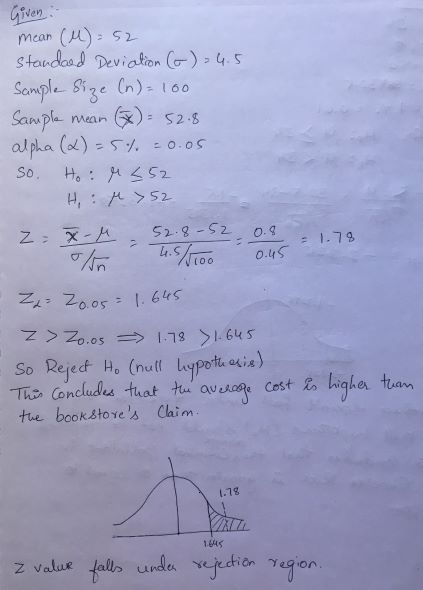 Given :-
mean (μ) = 52
Standard Deviation (σ) = 4.5
Sample Size (n) = 100
Sample mean (x̄) = 52.8
alpha (α) = 5% = 0.05
So, H₀ : μ ≤ 52
H₁ : μ > 52
Z = x̄ - μ / σ/√n = 52.8 - 52 / 4.5/√100 = 0.8 / 0.45 = 1.78
Zα = Z0.05 = 1.645
Z > Z0.05 ⟹ 1.78 > 1.645
So Reject H₀ (null hypothesis)
This Concludes that the average cost is higher than
the bookstore's Claim.
1.78
1.645
Z value falls under rejection region.